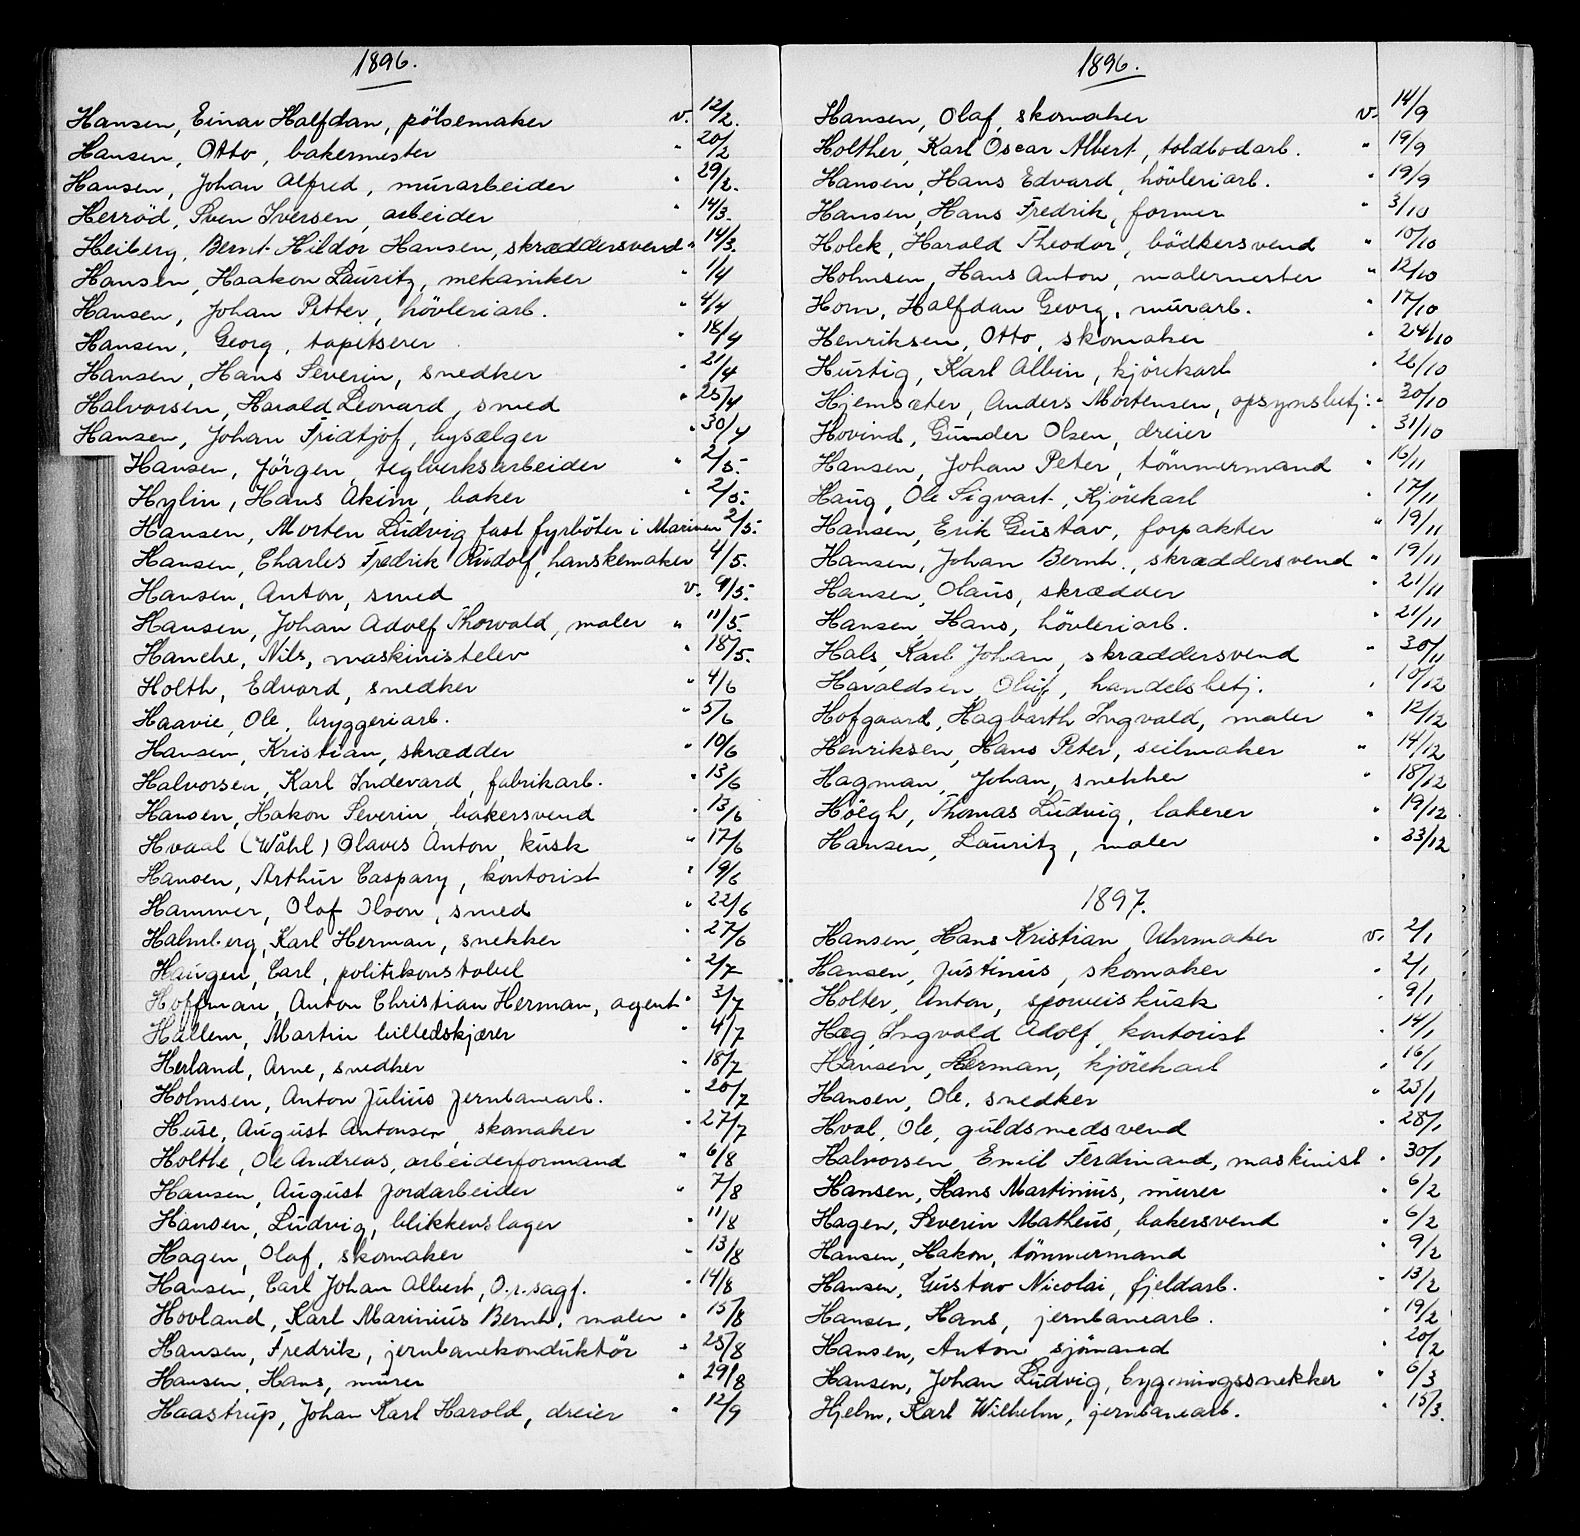 1896.
Hansen, Einar Halfdan, pölsemaker v. 12/2.
Hansen, Otto, bakermester " 20/2
Hansen, Johan Alfred, murarbeider " 29/2.
Herröd, Sven Iversen, arbeider " 14/3.
Heiberg, Bernt Hildor Hansen, skræddersvend " 14/3.
Hansen, Haakon Lauritz, mekaniker " 1/4
Hansen, Johan Petter, hövleriarb. " 4/4
Hansen, Georg, tapetserer " 18/4
Hansen, Hans Severin, snedker " 21/4
Halvorsen, Harald Leonard, smed " 25/4
Hansen, Johan Fridtjof, bysælger " 30/4
Hansen, Jörgen, teglverksarbeider " 2/5.
Hylin, Hans Akim, baker " 2/5.
Hansen, Morten Ludvig fast fyrböter i Marinen 2/5.
Hansen, Charles Fredrik Rudolf, hanskemaker 4/5.
Hansen, Anton, smed v. 9/5.
Hansen, Johan Adolf Thorvald, maler " 11/5.
Hanche, Nils, maskinistelev " 18/5.
Holth, Edvard, snedker " 4/6
Haavie, Ole, bryggeriarb. " 5/6
Hansen, Kristian, skrædder " 10/6
Halvorsen, Karl Indevard, fabrikarb. " 13/6
Hansen, Hakon Severin, bakersvend " 13/6
Hvaal (Wåhl) Olaves Anton, kusk " 17/6
Hansen, Arthur Caspary, kontorist " 19/6
Hammer, Olaf Olson, smed " 22/6
Halmberg, Karl Herman, snekker " 27/6
Haugen, Carl, politikonstabel " 2/7
Hoffman, Anton Christian Herman, agent " 3/7
Hallem, Martin billedskjærer " 4/7
Herland, Arne, snedker " 18/7
Holmsen, Anton Julius jernbanearb. " 20/7
Huse, August Antonsen, skomaker " 27/7
Holthe, Ole Andreas, arbeiderformand " 6/8
Hansen, August jordarbeider " 7/8
Hansen, Ludvig, blikkenslager " 11/8
Hagen, Olaf, skomaker " 13/8
Hansen, Carl Johan Albert, O.r.sagf. " 14/8
Hovland, Karl Marinius Bernh. maler " 15/8
Hansen, Fredrik, jernbanekonduktör " 25/8
Hansen, Hans, murer " 29/8
Haastrup, Johan Karl Harold, dreier " 12/9
1896.
Hansen, Olaf, skomaker v. 14/9
Holther, Karl Oscar Albert, toldbodarb. " 19/9
Hansen, Hans Edvard, hövleriarb. " 19/9
Hansen, Hans Fredrik, former " 3/10
Holck, Harald Theodor, bödkersvend " 10/10
Holmsen, Hans Anton, malermester " 12/10
Horn, Halfdan Georg, murarb. " 17/10
Henriksen, Otto, skomaker " 24/10
Hurtig, Karl Albin, kjörekarl " 26/10
Hjemsæter, Anders Mortensen, opsynsbetj. " 30/10
Hovind, Gunder Olsen, dreier " 31/10
Hansen, Johan Peter, tömmermand " 16/11
Haug, Ole Sigvart, Kjörekarl " 17/11
Hansen, Erik Gustav, forpakter " 19/11
Hansen, Johan Bernh., skræddersvend " 19/11
Hansen, Olaus, skrædder " 21/11
Hansen, Hans, hövleriarb. " 21/11
Hals, Karl Johan, skræddersvend " 30/11
Haraldsen, Oluf, handelsbetj. " 10/12
Hofgaard, Hagbarth Ingvald, maler " 12/12
Henriksen, Hans Peter, seilmaker " 14/12
Hagman, Johan, snekker " 18/12
Höegh, Thomas Ludvig, lakerer " 19/12
Hansen, Lauritz, maler " 23/12
1897.
Hansen, Hans Kristian, Uhrmaker v. 2/1
Hansen, Justinus, skomaker " 2/1
Holter, Anton, sporveiskusk " 9/1
Hæg, Ingvald Adolf, kontorist " 14/1
Hansen, Herman, kjörekarl " 16/1
Hansen, Ole, snedker " 23/1
Hval, Ole, guldsmedsvend " 28/1
Halvorsen, Emil Ferdinand, maskinist " 30/1
Hansen, Hans Martinius, murer " 6/2
Hagen, Severin Matheus, bakersvend " 6/2
Hansen, Hakon, tömmermand " 9/2
Hansen, Gustav Nicolai, fjeldarb. " 13/2
Hansen, Hans, jernbanearb. " 19/2
Hansen, Anton sjömand " 20/2
Hansen, Johan Ludvig, bygningssnekker " 6/3
Hjelm, Karl Wilhelm, jernbanearb. " 15/3.